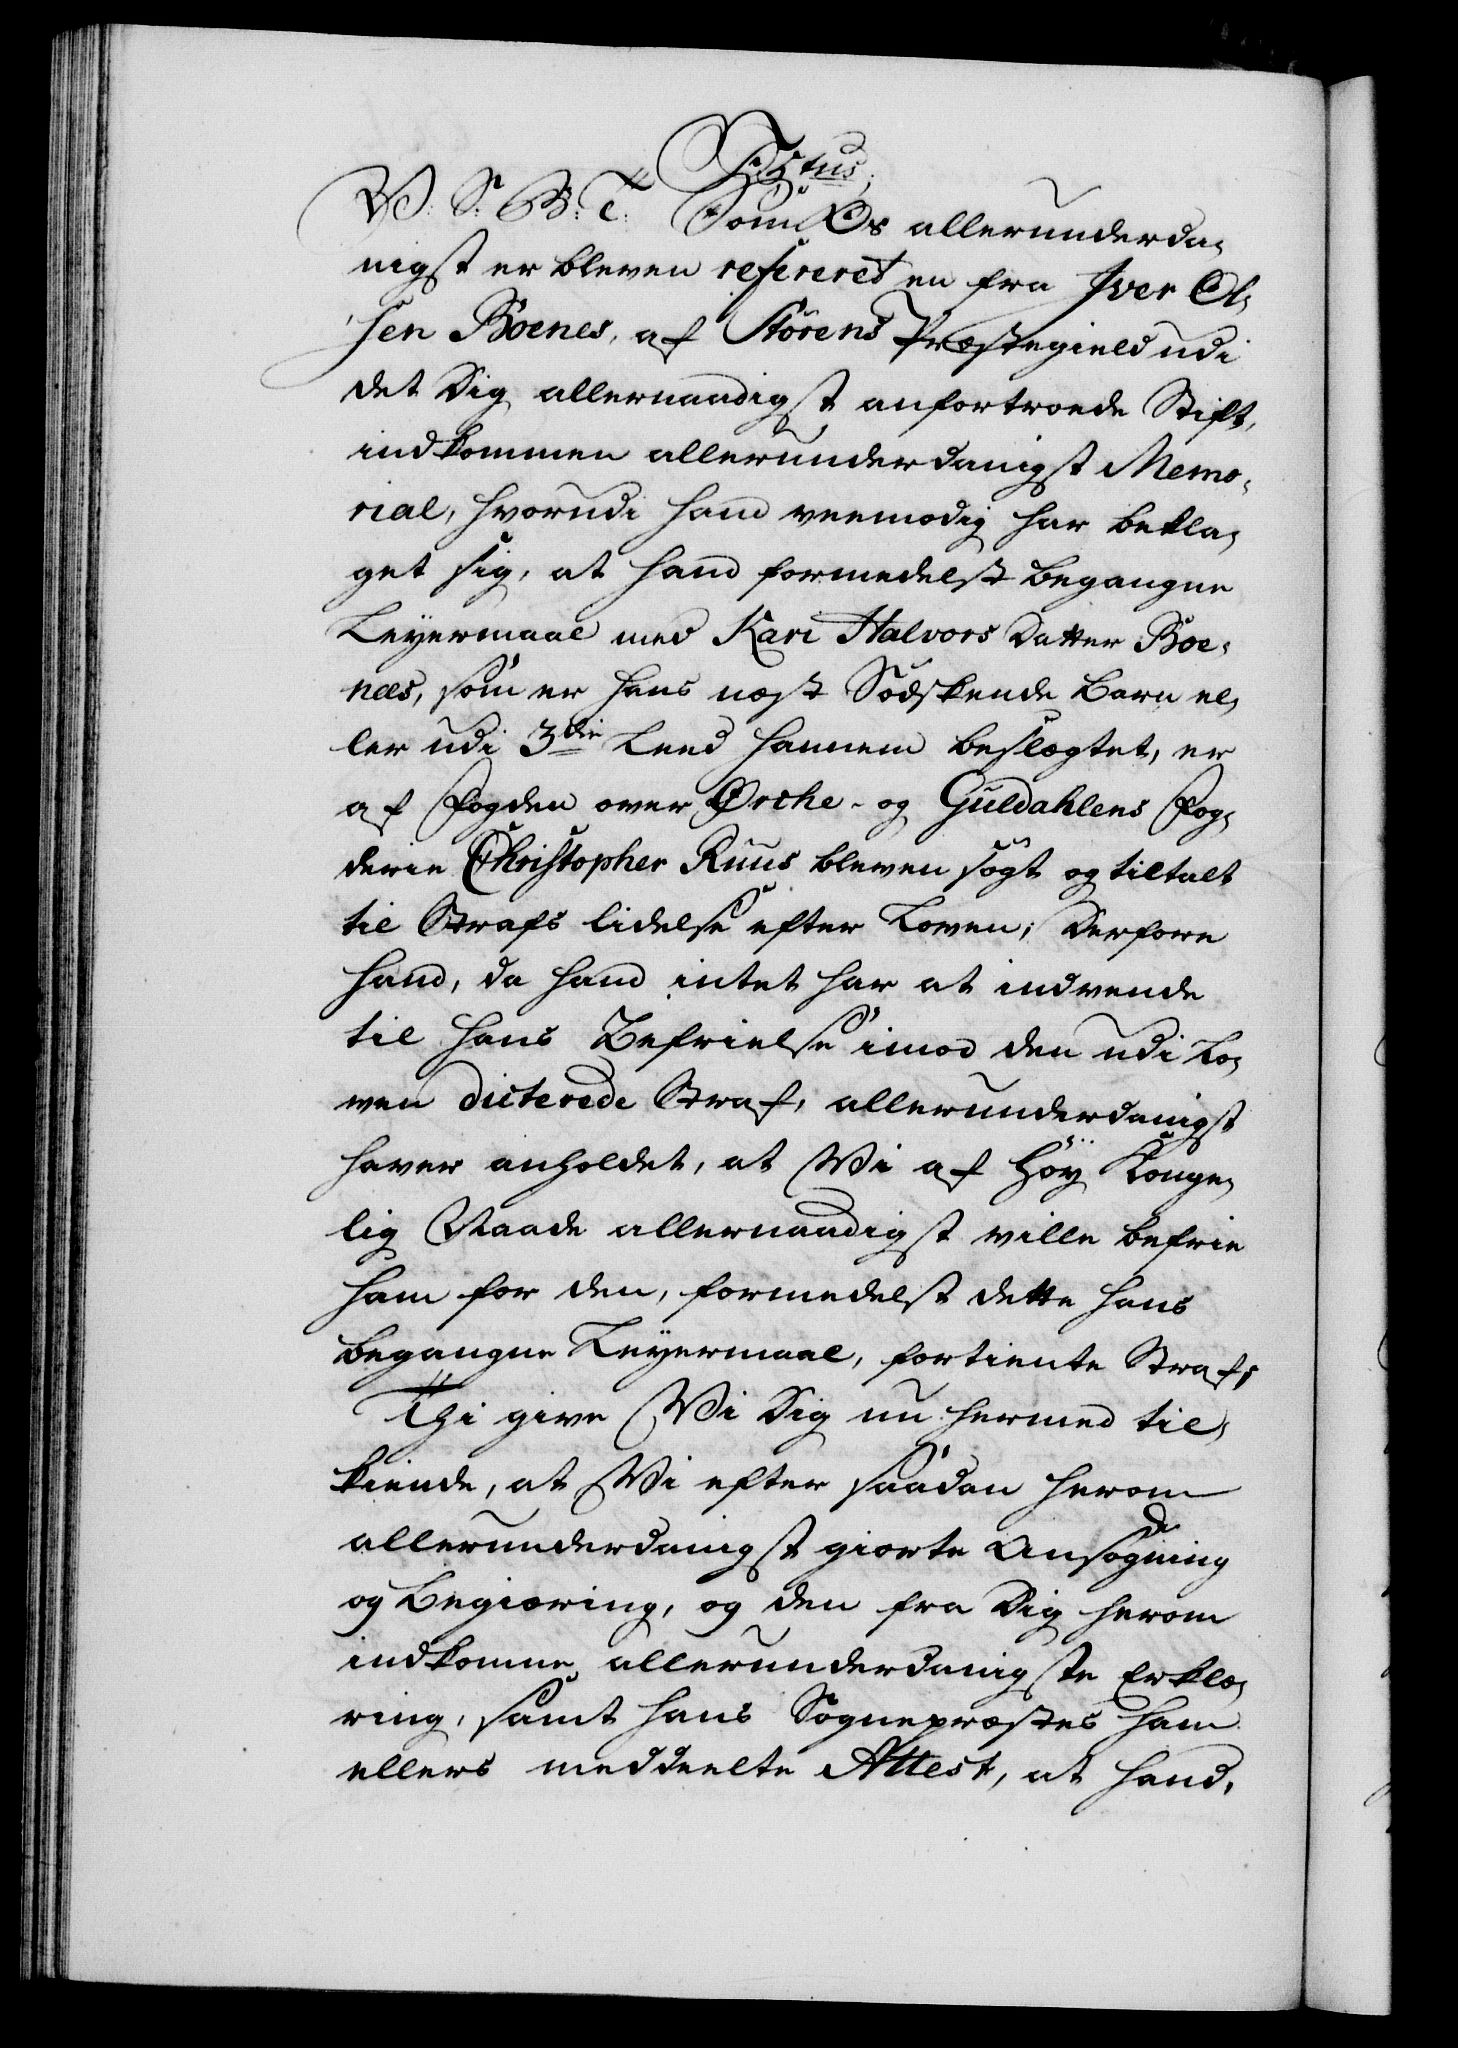 Tytus;
V. S. G. T. Som Os allerunderda-
nigst er bleven refereret en fra Jver Ol-
sen Boenes, af Störens Præstegield udi
det Dig allernaadigst anfortroede Stift,
indkommen allerunderdanigst Memo-
rial, hvorudi hand veemodig har bekla-
get sig, at hand formedelst begangne
Leyermaal med Kari Halvors Datter Boe-
næs, som er hans nest Södskende Barn el-
ler udi 3die Leed hannem beslægtet, er
af Fogden over Orche- og Guldahlens Fog-
derie Christopher Ruus bleven sögt og tiltalt
til Strafs lidelse efter Loven; Derfore
hand, da hand intet har at indvende
til hans Befrielse imod den udi Lo-
ven dicterede Straf, allerunderdanigst
haver anholdet, at Vi af Höy Konge-
lig Naade allernaadigst ville befrie
ham for den, formedelst dette hans
begangne Leyermaal, fortiente Straf;
Thi give Vi Dig nu hermed til-
kiende, at Vi efter saadan herom
allerunderdanigst giorte Ansögning
og Begiæring, og den fra Dig herom
indkomne allerunderdanigste Erklæ-
ring, samt hans Sognepræstes ham
ellers meddeelte Attest, at hand,